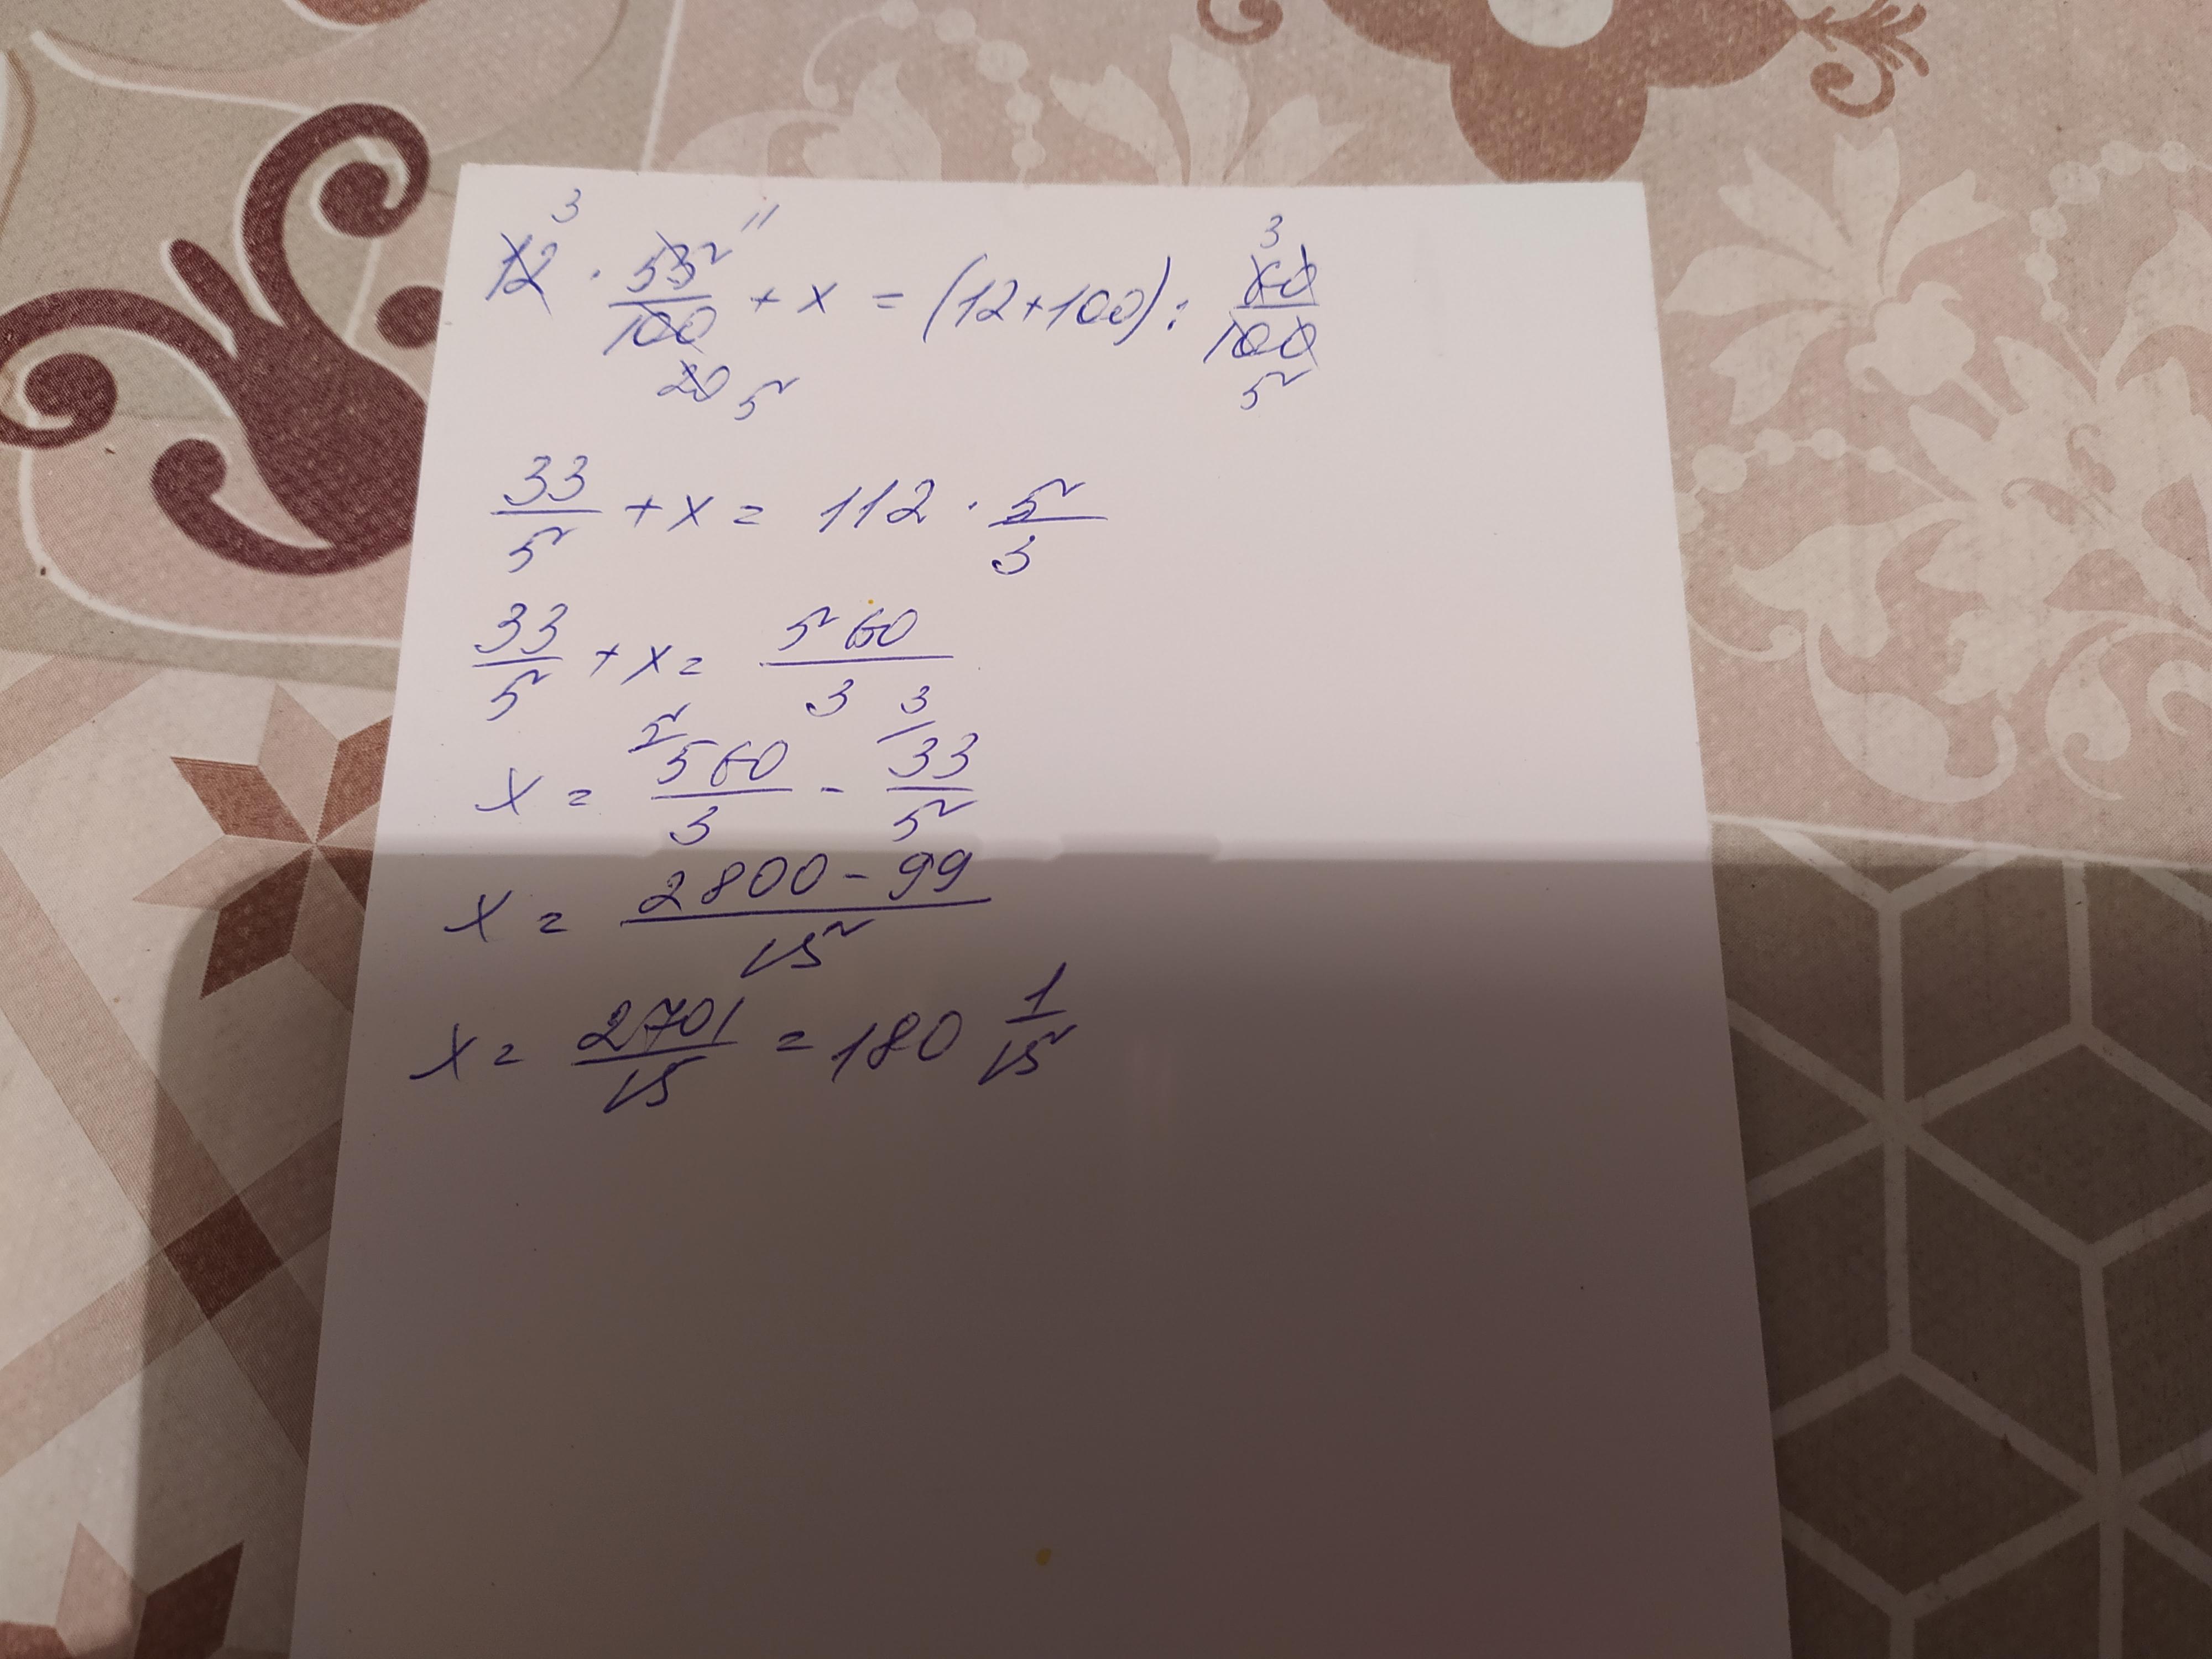 3 11 3
12 · 55/100 + x = (12+100) : 60/100
20 5 5
33/5 + x = 112 · 5/3
33/5 + x = 560/3
5 3
x = 560/3 - 33/5
x = 2800-99/15
x = 2701/15 = 180 1/15